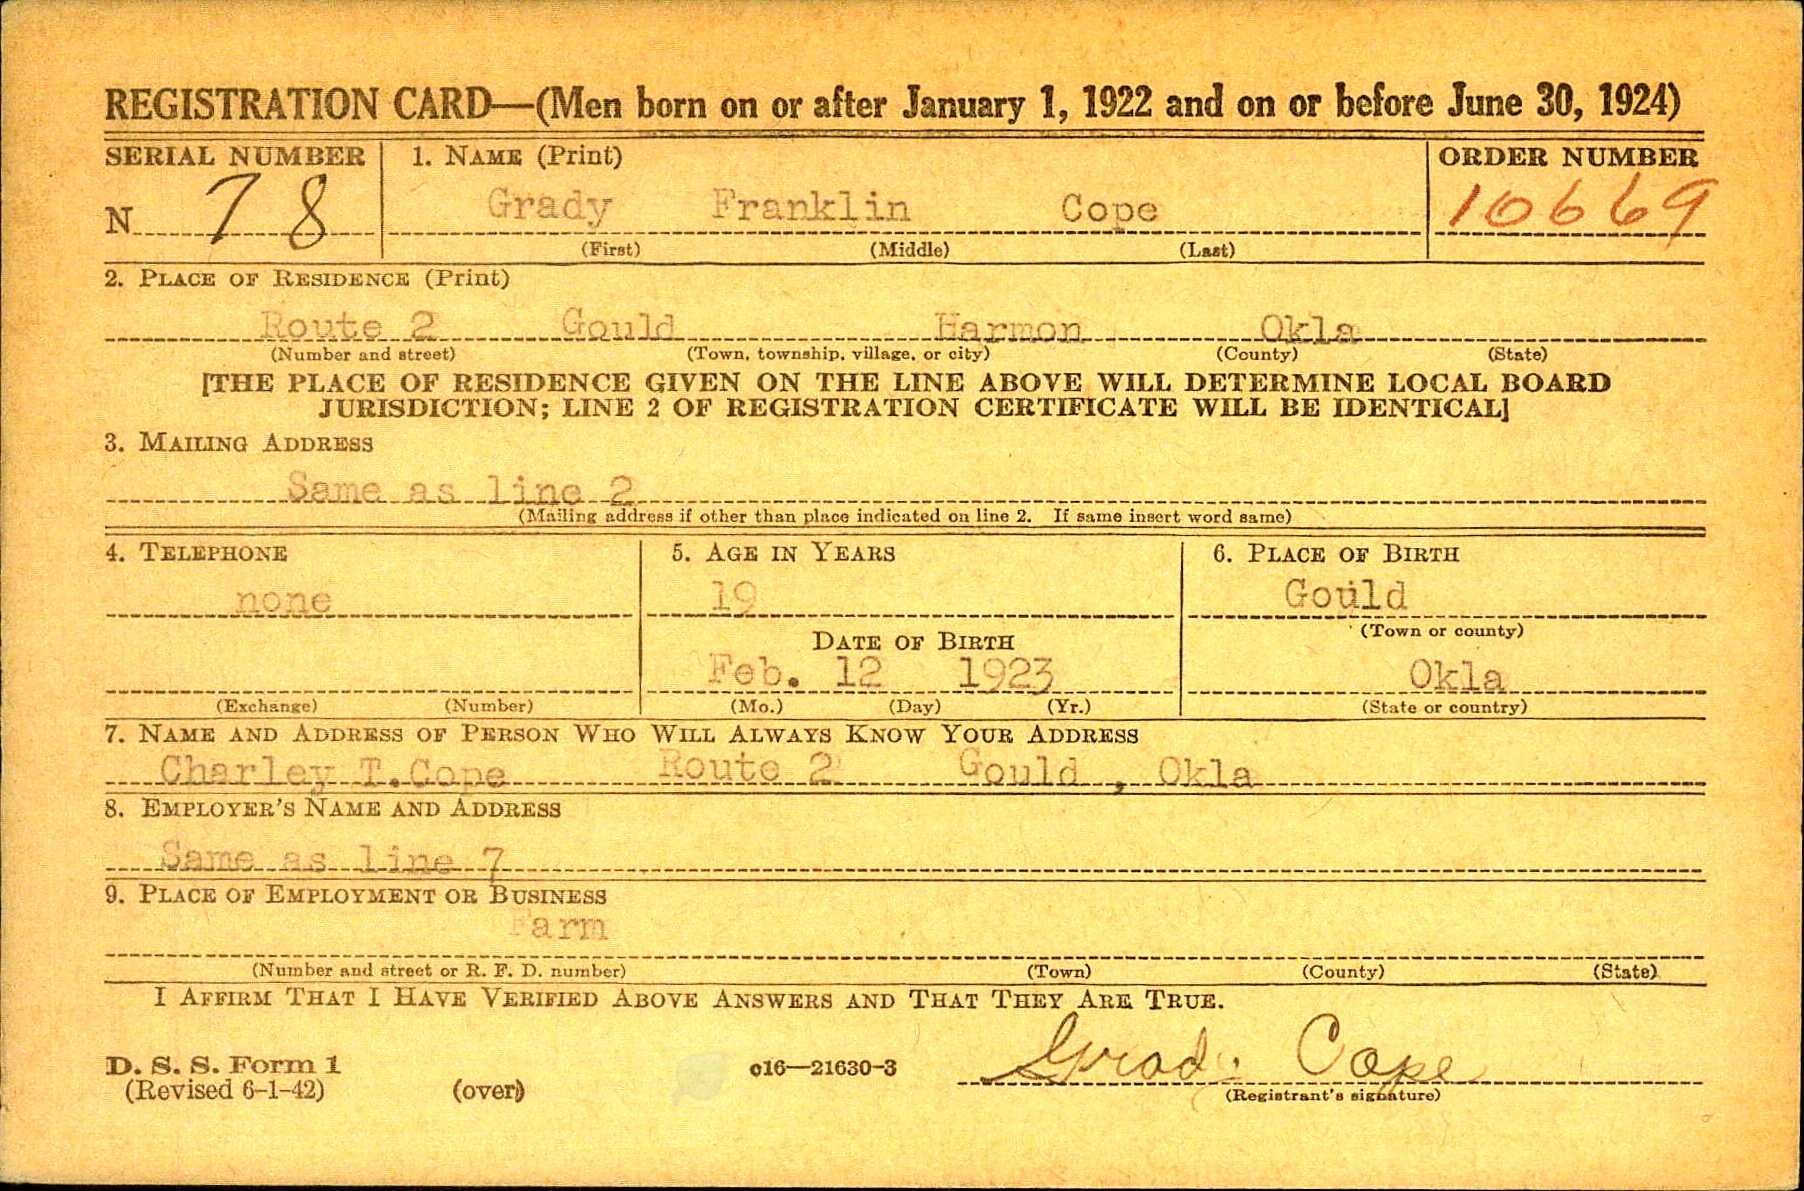 REGISTRATION CARD—(Men born on or after January 1, 1922 and on or before June 30, 1924)
SERIAL NUMBER 1. NAME (Print) ORDER NUMBER
N 78 Grady Franklin Cope 10669
(First) (Middle) (Last)
2. PLACE OF RESIDENCE (Print)
Route 2 Gould Harmon Okla
(Number and street) (Town, township, village, or city) (County) (State)
[THE PLACE OF RESIDENCE GIVEN ON THE LINE ABOVE WILL DETERMINE LOCAL BOARD
JURISDICTION; LINE 2 OF REGISTRATION CERTIFICATE WILL BE IDENTICAL]
3. MAILING ADDRESS
Same as line 2
(Mailing address if other than place indicated on line 2. If same insert word same)
4. TELEPHONE 5. AGE IN YEARS 6. PLACE OF BIRTH
none 19 Gould
(Town or county)
DATE OF BIRTH
Feb. 12 1923 Okla
(Exchange) (Number) (Mo.) (Day) (Yr.) (State or country)
7. NAME AND ADDRESS OF PERSON WHO WILL ALWAYS KNOW YOUR ADDRESS
Charley T. Cope Route 2 Gould , Okla
8. EMPLOYER'S NAME AND ADDRESS
Same as line 7
9. PLACE OF EMPLOYMENT OR BUSINESS
Farm
(Number and street or R. F. D. number) (Town) (County) (State)
I AFFIRM THAT I HAVE VERIFIED ABOVE ANSWERS AND THAT THEY ARE TRUE.
D. S. S. Form 1 c16—21630-3 Grady Cope
(Revised 6-1-42) (over) (Registrant's signature)